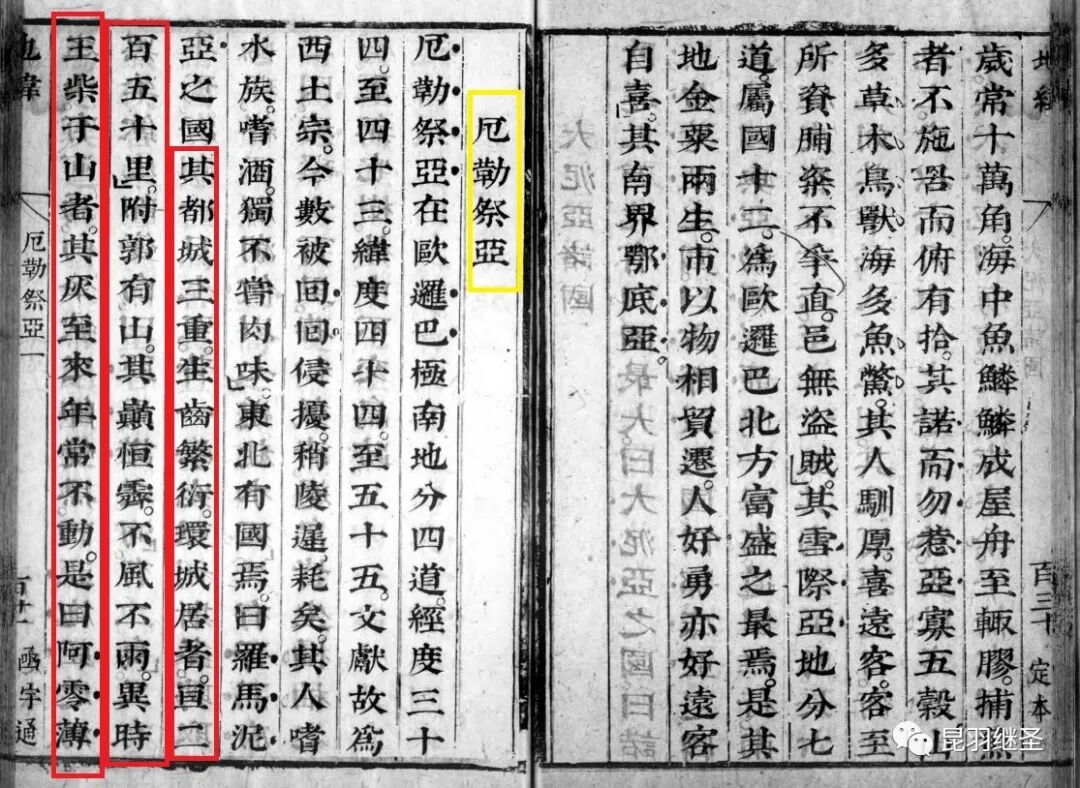 地緯 百三十 定本
歲常十萬角。海中魚鱗鱗成屋舟至輙膠。捕魚
者不施罟而俯有拾。其諾而勿惹亞寡五穀山
多草木鳥獸海多魚鱉。其人馴厚。喜遠客。客至
所資脯粢不争直。邑無盜賊。其雪際亞地分七
道。屬國十二。爲歐邏巴北方富盛之最焉。是其
地金粟兩生。市以物相貿遷。人好勇亦好遠客
自喜。其南界鄂底亞。
厄勒祭亞
厄勒祭亞在歐邏巴極南地分四道。經度三十
四。至四十三。緯度四十四。至五十五。文獻故爲
西土宗。今數被回回侵擾。稍陵遲。耗矣。其人嗜
水族。嗜酒。獨不嘗肉味。東北有國焉。曰羅馬泥
亞之國其都城三重。生齒繁衍。環城居者。亘二
百五十里。附郭有山。其巔恒霽。不風不雨。異時
王柴于山者。其灰至來年常不動。是曰阿零薄
地緯 厄勒祭亞一 函宇通
昆羽继圣